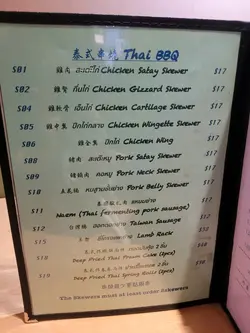 泰式串燒 Thai BBQ
S01 雞肉 สะเต๊ะไก่ Chicken Satay Skewer $17
S02 雞腎 กึ๋นไก่ Chicken Gizzard Skewer $17
S04 雞軟骨 เอ็นไก่ Chicken Cartilage Skewer $17
S05 雞中翼 ปีกไก่กลาง Chicken Wingette Skewer $17
S06 雞全翼 ปีกไก่ Chicken Wing $17
S08 豬肉 สะเต๊ะหมู Pork Satay Skewer $17
S09 豬頸肉 คอหมู Pork Neck Skewer $17
S10 五花腩 หมูสามชั้นย่าง Pork Belly Skewer $17
S11 Naem (Thai fermenting pork sausage) $17
S12 台灣腸 Taiwan Sausage $17
S15 Lamb Rack
Deep Fried Thai Prawn Cake (2pcs)
Deep Fried Thai Spring Rolls (3pcs)
The Skewers must at least order